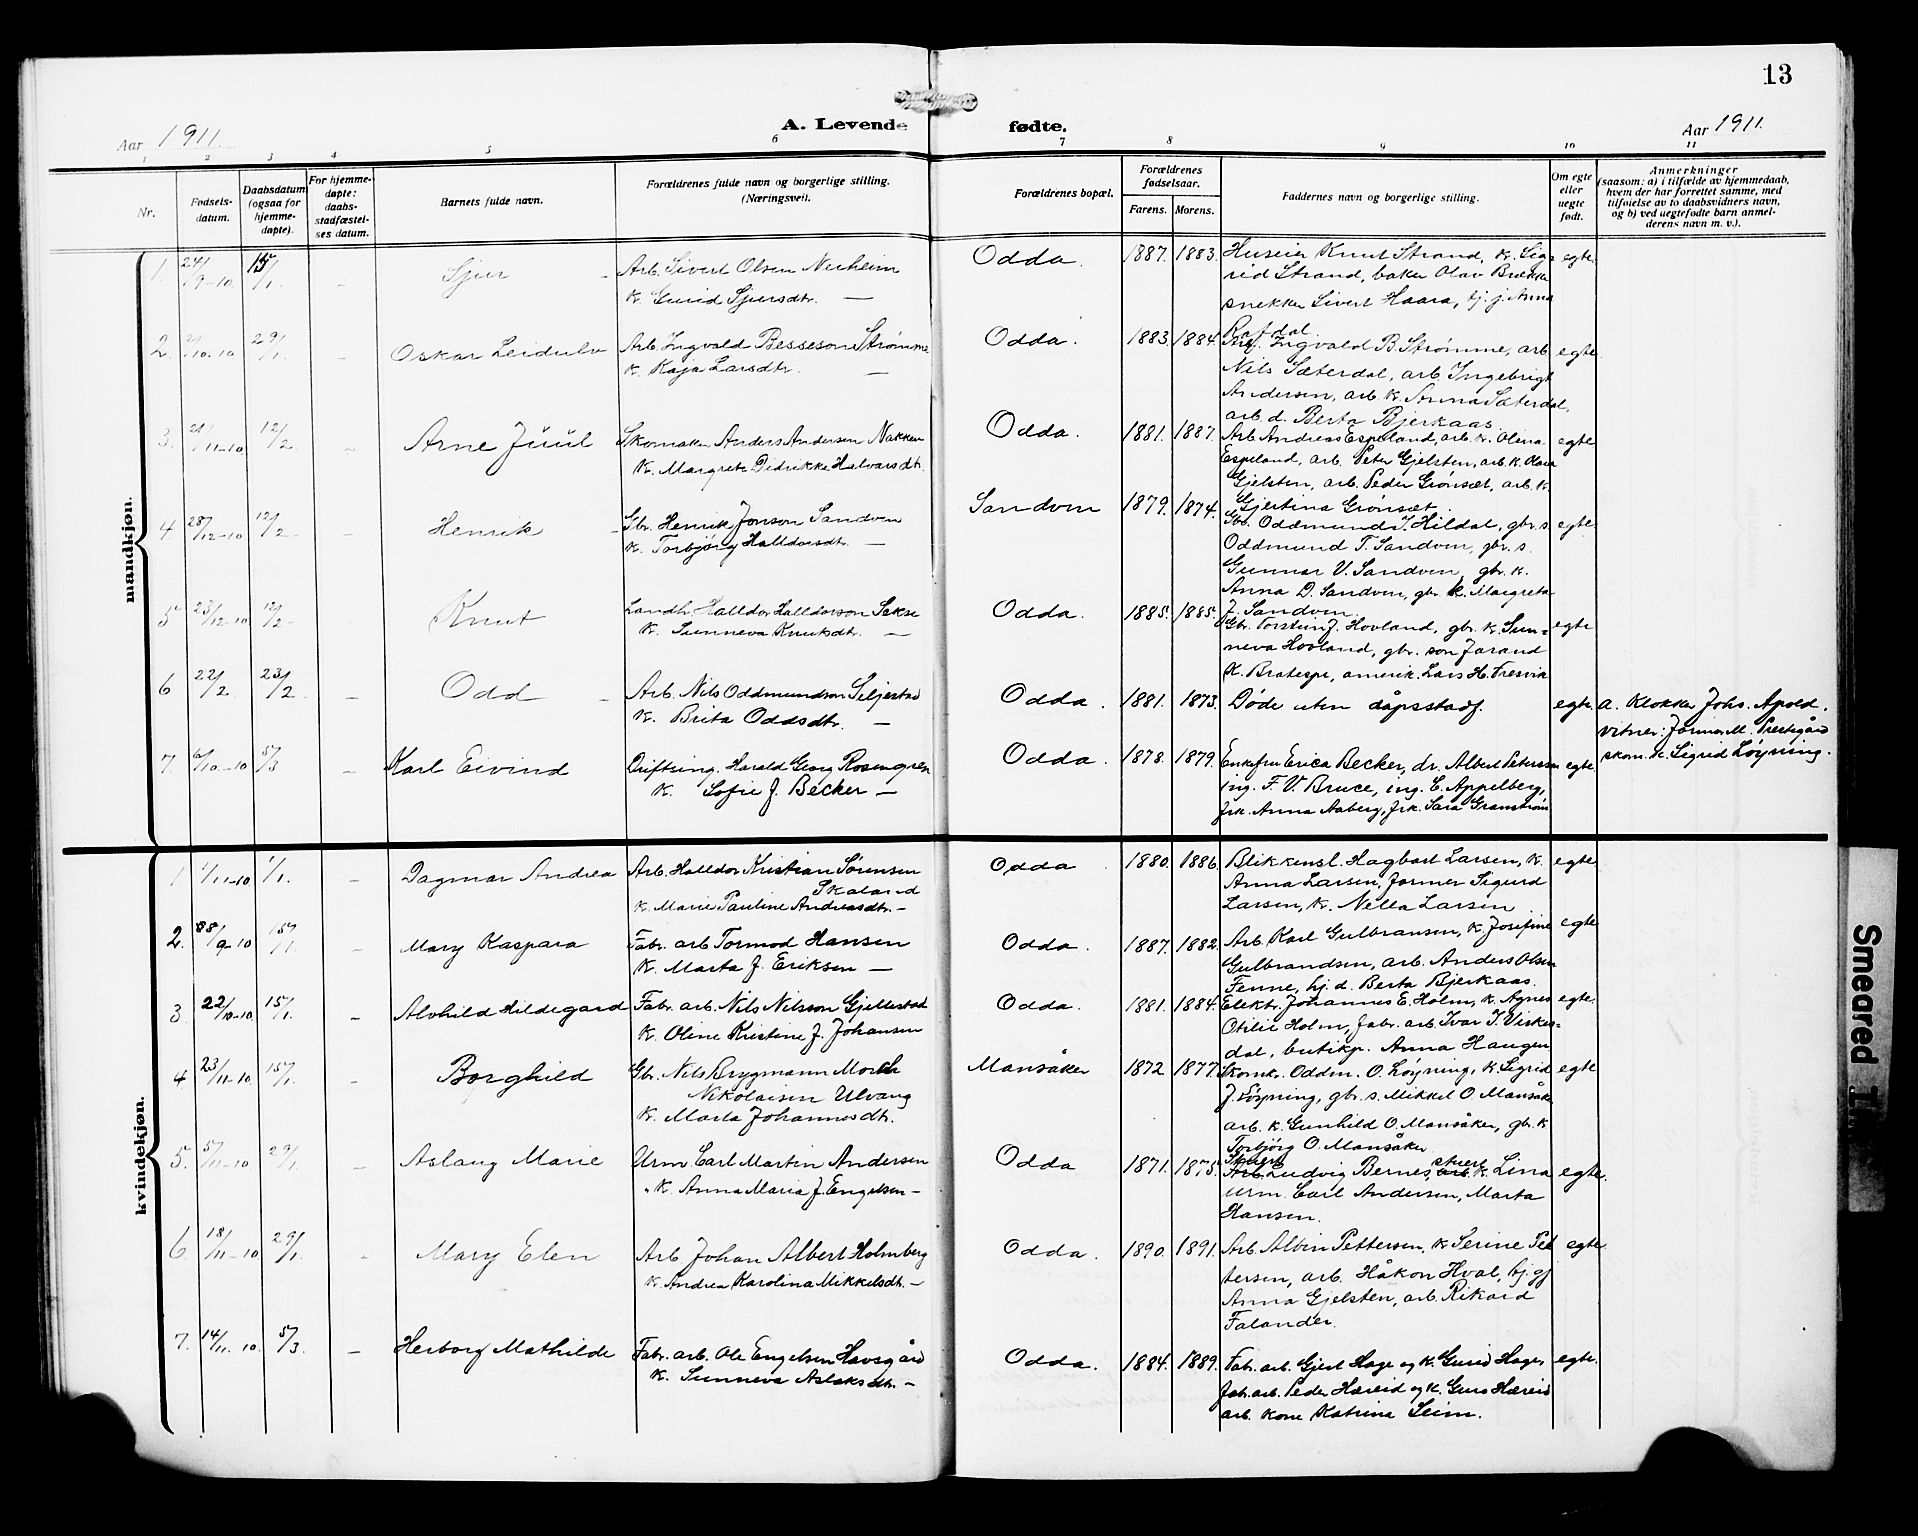 13
Aar 1911.
A. Levende fødte.
Aar 1911.
1 2 3 4 5 6 7 8 9 10 11
Nr.
Fødsels-
datum.
Daabsdatum
(ogsaa for
hjemme-
døpte).
For hjemme-
døpte:
daabs-
stadfæstel-
ses datum.
Barnets fulde navn.
Forældrenes fulde navn og borgerlige stilling.
(Næringsvei).
Forældrenes bopæl.
Forældrenes
fødselsaar.
Farens. Morens.
Faddernes navn og borgerlige stilling.
Om egte
eller
uegte
født.
Anmerkninger
(saasom: a) i tilfælde av hjemmedaab,
hvem der har forrettet samme, med
tilføielse av to daabsvidners navn,
og b) ved uegtefødte barn anmel-
derens navn m. v.).
mandkjøn.
1. 24/9-10 15/1. - Sjur - Arb. Sivert Olsen Neeheim Odda. 1887. 1883. Huseier Knut Strand, k. Sig-
rid Strand, baker Olav Brekke egte.
K. Gurid Sjursdtr. —
snekker Sivert Haara, tj. j. Anna
Rafdal.
2. 2/10-10 29/1. - Oskar Leidulv Arb. Ingvald Besseson Strømme Odda. 1883. 1884. Arb. Ingvald B. Strømme, arb. egte.
K. Kaja Larsdtr. —
Nils Sæterdal, arb. Ingebrigt
Andersen, arb. k. Anna Sæterdal,
arb. d. Berta Bjerkaas.
3. 21/11-10 12/2. - Arne Juul Skomaker Anders Andersen Nakken Odda. 1881. 1887. Arb. Andreas Espeland, arb. k. Olina egte
K. Margrete Didrikke Halvarsdtr.
Espeland, arb. Peter Gjelsten, arb. k. Olava
Gjelsten, arb. Peder Grønsæt, arb. k.
Gjertina Grønsæt.
4 28/12-10 12/2. - Henrik - Gbr. Henrik Jonson Sandven Sandven 1879. 1874. Gbr. Oddmund J. Hildal, gbr. s. egte
K. Torbjørg Halldorsdtr. —
Oddmund T. Sandven, gbr. s.
Gunnar V. Sandven, gbr. k.
Anna D. Sandven, gbr. k. Margreta
J. Sandven.
5 23/12-10 12/2- - Knut Landh. Halldor Halldorson Sekse Odda. 1885. 1885. Gbr. Torstein J. Hovland, gbr. k. Sun- egte
K. Sunneva Knutsdtr. —
neva Hovland, gbr. son Jarand
K. Bratespe, amerik. Lars H. Tresvik
6 22/2. 23/2. - Odd - Arb. Nils Oddmundson Seljestad Odda. 1881. 1873. Døde uten dåpsstadf. egte. a. Klokker Johs. Apold.
K. Brita Oddsdtr. —
vitner: Jormor M. Prestegård
skom. k. Sigrid Løyning.
7. 6/10-10 5/3. - Karl Eivind Driftsing. Harald Georg Rosengren Odda. 1878. 1879. Enkefru Erica Becker, dr. Albert Petersson egte.
K. Sofie J. Becker —
ing. F. V. Bruce, ing. E. Appelberg,
frk. Anna Aaberg, frk. Sara Granstrøm
kvindekjøn.
1 1/11-10 1/1. - Dagmar Andrea Arb. Halldor Kristian Sørensen Odda. 1880. 1886. Blikkensl. Hagbart Larsen, k. egte.
Skaland
K. Marie Pauline Andreasdtr. —
Anna Larsen, former Sigurd
Larsen, k. Nella Larsen
2. 28/9-10 15/1. - Mary Kaspara Fabr. arb. Tormod Hansen Odda. 1887. 1882. Arb. Karl Gulbransen, k. Josefine egte
K. Marta J. Eriksen —
Gulbrandsen, arb. Anders Olsen
Fenne, tj. d. Berta Bjerkaas.
3 22/10-10 15/1. - Alvhild Hildegard Fabr. arb. Nils Nilsson Gjellestad Odda. 1881. 1884. Elektr. Johannes E. Holm, k. Agnes egte.
K. Oline Kristine J. Johansen
Otilie Holm, fabr. arb. Ivar I. Visker-
dal, butikp. Anna Haugen
4 23/11-10 15/1. - Borghild Gbr. Nils Brygmann Mork Mansåker 1872 1877. Skomk. Oddm. O. Løyning, k. Sigrid egte
Nikolaisen Ulvang
K. Marta Johannesdtr.
J. Løyning, gbr. s. Mikkel O. Mansåker
arb. k. Gunhild O. Mansåker, gbr. k
Torbjørg O. Mansåker
5. 5/11-10 29/1. - Aslaug Marie Urm. Carl Martin Andersen Odda 1871. 1875. Stuert Ludvig Bernes, stuert k. Lina egte.
" K. Anna Maria J. Engelsen —
urm. Carl Andersen, Marta
Hansen.
6. 18/11-10 29/1. - Mary Elen Arb. Johan Albert Holmberg Odda. 1890. 1891. Arb. Albin Pettersen, k. Serine Pet- egte.
K. Andrea Karolina Mikkelsdtr. —
tersen, arb. Håkon Hval, tj. gj
Anna Gjelsten, arb. Rikard
Falander.
7. 14/11-10. 5/3. - Herborg Mathilde Fabr. arb. Ole Engelsen Havsgård Odda. 1884. 1889. Fabr. arb. Gjert Hage og k. Gurid Hage, egte.
K. Sunneva Aslaksdtr. —
fabr. arb. Peder Hæreid og k. Guro Hæreid
arb. kone Katrina Seim.
Smeared